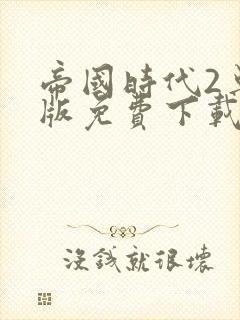 帝國時代2
版免費下載
沒錢就很壞